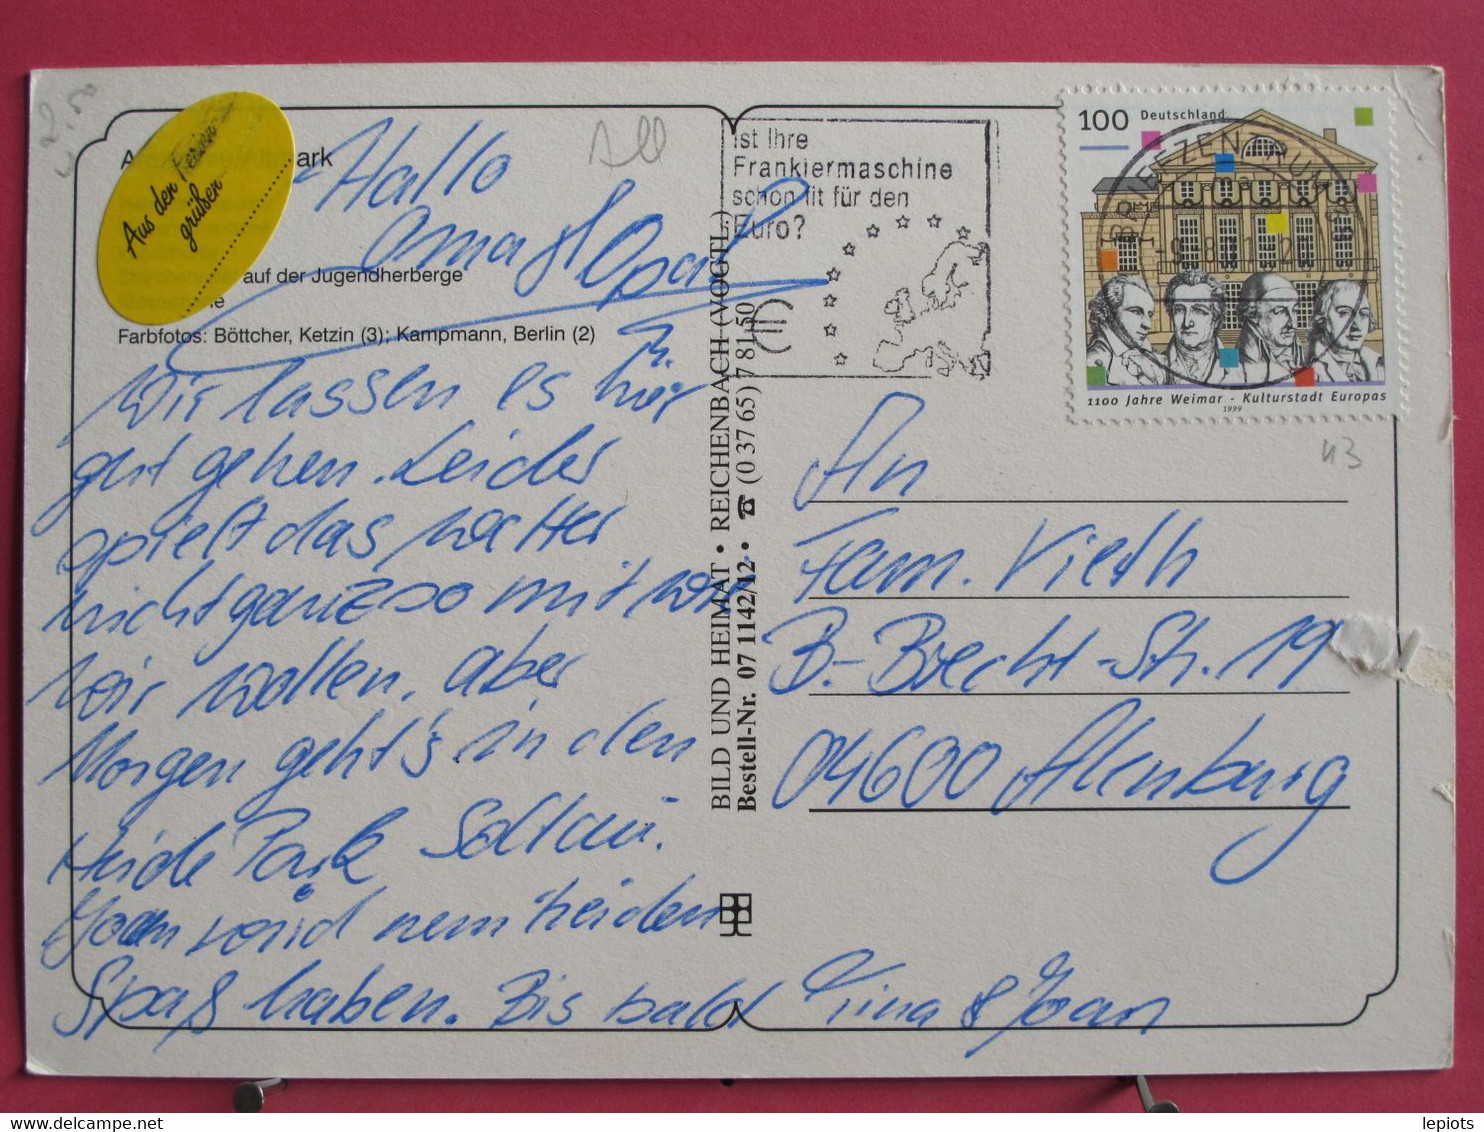 2,50
A ark
Aus den Ferien
grüßen
auf der Jugendherberge
e
Farbfotos: Böttcher, Ketzin (3); Kampmann, Berlin (2)
Hallo
Oma & Opa!
Wir lassen es hier
gut gehen. Leider
spielt das Wetter
nicht ganz so mit wie
wir wollen, aber
Morgen geht's in den
Heide Park Soltau.
Joan wird
Spaß haben. Bis bald Tina & Joan
BILD UND HEIMAT • REICHENBACH (VOGTL.)
Bestell-Nr. 07 1142/12 • ☎ (0 37 65) 7 81 50
Ist Ihre
Frankiermaschine
schon fit für den
Euro?
€
100 Deutschland
1100 Jahre Weimar - Kulturstadt Europas
1999
43
An
Fam. Vieth
B.-Brecht-Str. 19
04600 Altenburg
lepiots